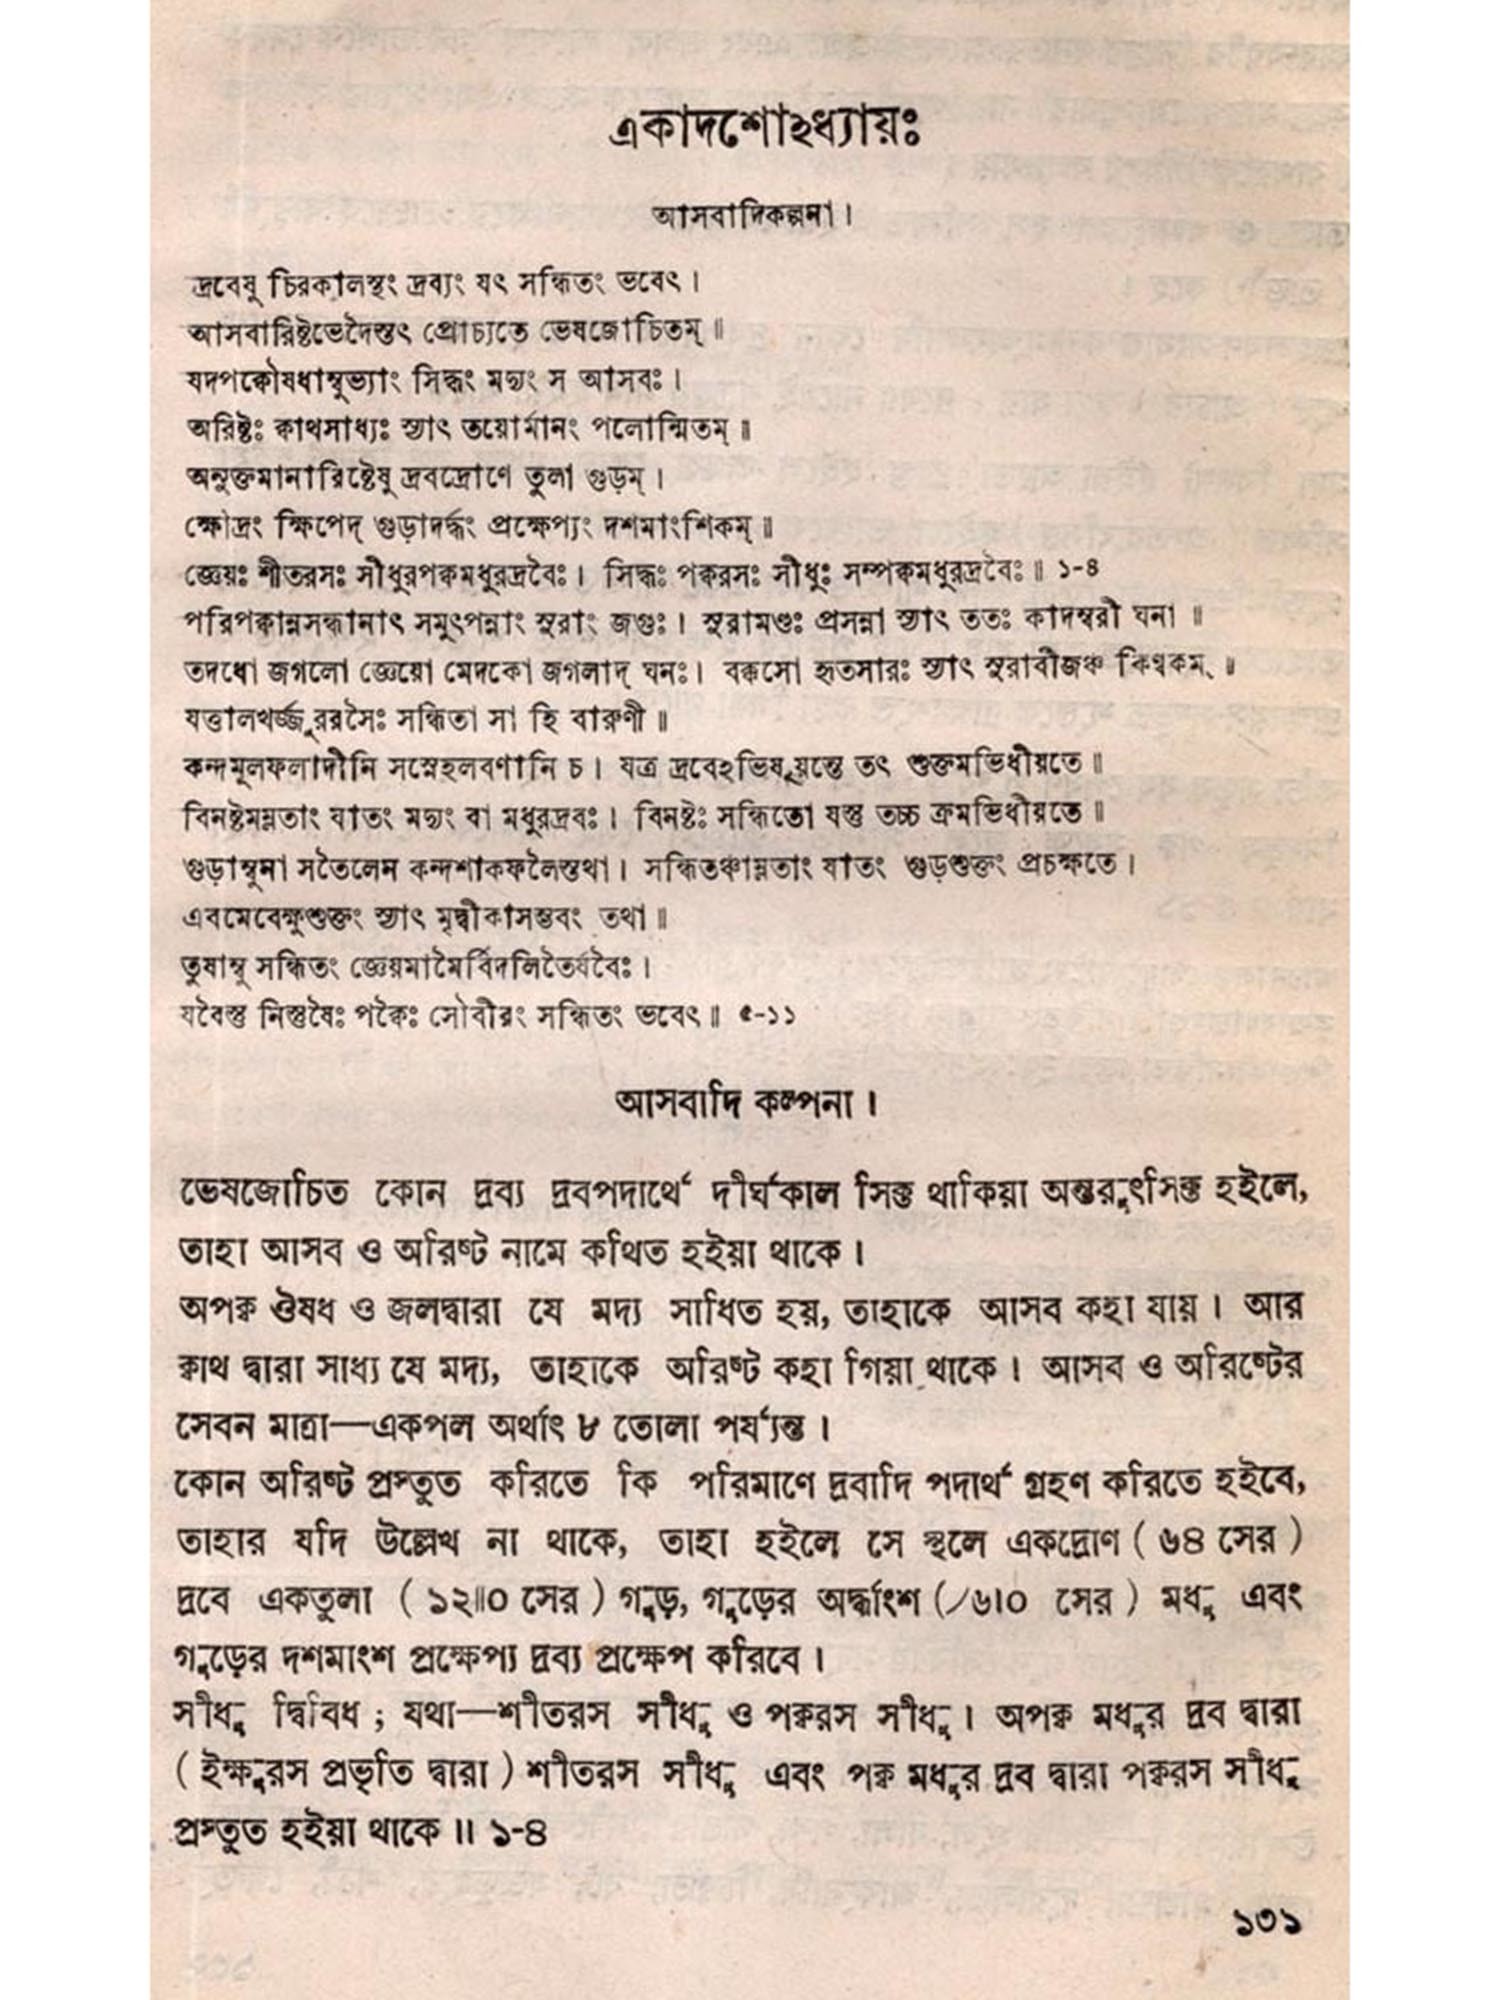 একাদশোঽধ্যায়ঃ
আসবাদিকল্পনা।
দ্রবেষু চিরকালস্থং দ্রব্যং যৎ সন্ধিতং ভবেৎ।
আসবারিষ্টভেদৈস্তৎ প্রোচ্যতে ভেষজোচিতম্॥
যদপক্বৌষধাম্বুভ্যাং সিদ্ধং মদ্যং স আসবঃ।
অরিষ্টঃ ক্বাথসাধ্যঃ স্যাৎ তয়োর্মানং পলোন্মিতম্॥
অনুক্তমানারিষ্টেষু দ্রবদ্রোণে তুলা গুড়ম্।
ক্ষৌদ্রং ক্ষিপেদ্ গুড়াদর্দ্ধং প্রক্ষেপ্যং দশমাংশিকম্॥
জ্ঞেয়ঃ শীতরসঃ সীধুরপক্বমধুরদ্রবৈঃ। সিদ্ধঃ পক্বরসঃ সীধুঃ সম্পক্বমধুরদ্রবৈঃ॥ ১-৪
পরিপক্বান্নসন্ধানাৎ সমুৎপন্নাং সুরাং জগুঃ। সুরামণ্ডঃ প্রসন্না স্যাৎ ততঃ কাদম্বরী ঘনা॥
তদধো জগলো জ্ঞেয়ো মেদকো জগলাদ্ ঘনঃ। বক্কসো হৃতসারঃ স্যাৎ সুরাবীজঞ্চ কিণ্বকম্॥
যত্তালখর্জ্জূররসৈঃ সন্ধিতা সা হি বারুণী॥
কন্দমূলফলাদীনি সস্নেহলবণানি চ। যত্র দ্রবেঽভিষূয়ন্তে তৎ শুক্তমভিধীয়তে॥
বিনষ্টমম্লতাং যাতং মদ্যং বা মধুরদ্রবঃ। বিনষ্টঃ সন্ধিতো যস্তু তচ্চ ক্রমভিধীয়তে॥
গুড়াম্বুনা সতৈলেন কন্দশাকফলৈস্তথা। সন্ধিতঞ্চাম্লতাং যাতং গুড়শুক্তং প্রচক্ষতে।
এবমেবেক্ষুশুক্তং স্যাৎ মৃদ্বীকাসম্ভবং তথা॥
তুষাম্বু সন্ধিতং জ্ঞেয়মামৈর্বিদলিতৈর্যবৈঃ।
যবৈস্তু নিস্তুষৈঃ পক্বৈঃ সৌবীরং সন্ধিতং ভবেৎ॥ ৫-১১
আসবাদি কল্পনা।
ভেষজোচিত কোন দ্রব্য দ্রবপদার্থে দীর্ঘকাল সিক্ত থাকিয়া অন্তরুৎসিক্ত হইলে,
তাহা আসব ও অরিষ্ট নামে কথিত হইয়া থাকে।
অপক্ব ঔষধ ও জলদ্বারা যে মদ্য সাধিত হয়, তাহাকে আসব কহা যায়। আর
ক্বাথ দ্বারা সাধ্য যে মদ্য, তাহাকে অরিষ্ট কহা গিয়া থাকে। আসব ও অরিষ্টের
সেবন মাত্রা—একপল অর্থাৎ ৮ তোলা পর্য্যন্ত।
কোন অরিষ্ট প্রস্তুত করিতে কি পরিমাণে দ্রবাদি পদার্থ গ্রহণ করিতে হইবে,
তাহার যদি উল্লেখ না থাকে, তাহা হইলে সে স্থলে একদ্রোণ (৬৪ সের)
দ্রবে একতুলা (১২॥০ সের) গুড়, গুড়ের অর্দ্ধাংশ (৴৬।০ সের) মধু এবং
গুড়ের দশমাংশ প্রক্ষেপ্য দ্রব্য প্রক্ষেপ করিবে।
সীধু দ্বিবিধ; যথা—শীতরস সীধু ও পক্বরস সীধু। অপক্ব মধুর দ্রব দ্বারা
(ইক্ষুরস প্রভৃতি দ্বারা) শীতরস সীধু এবং পক্ব মধুর দ্রব দ্বারা পক্বরস সীধু
প্রস্তুত হইয়া থাকে॥ ১-৪
১৩১